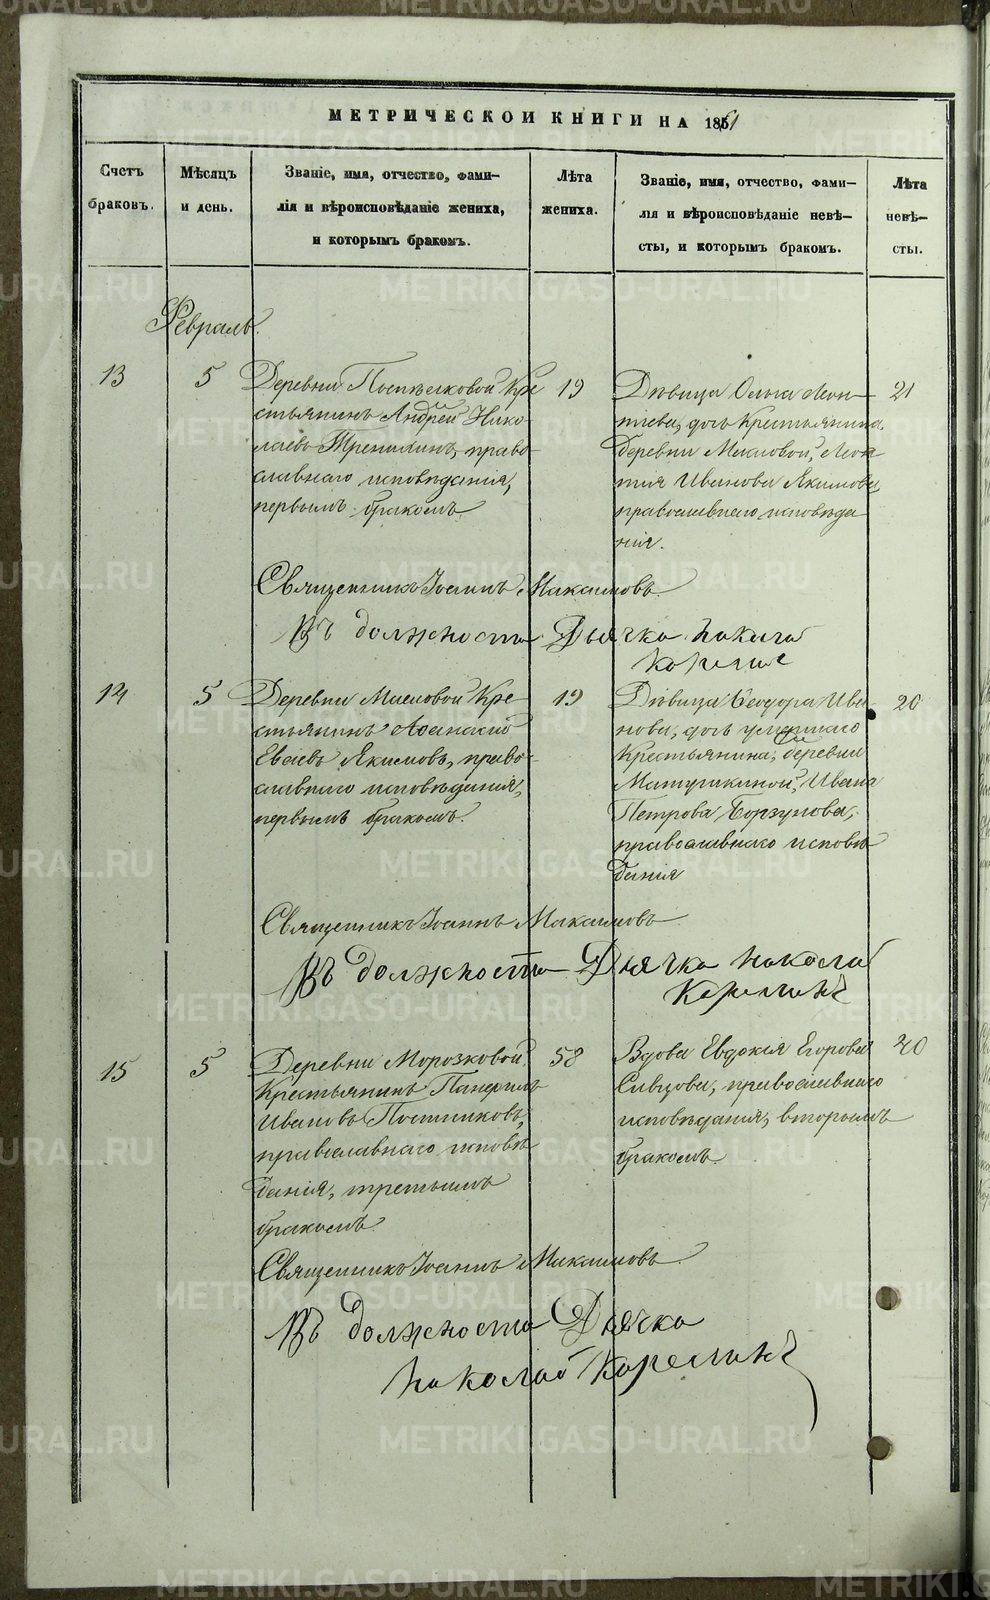 МЕТРИЧЕСКОЙ КНИГИ НА 1861
Счетъ браковъ.
Мѣсяцъ и день.
Званіе, имя, отчество, фами-
лія и вѣроисповѣданіе жениха,
и которымъ бракомъ.
Лѣта
жениха.
Званіе, имя, отчество, фами-
лія и вѣроисповѣданіе невѣ-
сты, и которымъ бракомъ.
Лѣта
невѣ-
сты.
Февраль.
13
5
Деревни Поспѣлковой Кре
стьянинъ Андрей Нико-
лаевъ Трепихинъ, право-
славнаго исповѣданія,
первымъ бракомъ
19
Дѣвица Ольга Леон-
тьева, дочь Крестьянина
деревни Мисловой, Леон
тія Иванова Якимова,
православнаго исповѣда
нія.
21
Священникъ Іоаннъ Максимовъ
Въ должности Дьячка Николай
Корелинъ
14
5
Деревни Мисловой Кре-
стьянинъ Афанасій
Евсѣевъ Якимовъ, право-
славнаго исповѣданія,
первымъ бракомъ.
19
Дѣвица Ѳеодора Ива
нова, дочь умершаго
Крестьянина, деревни
Матушкиной, Ивана
Петрова Борзунова,
православнаго исповѣ
данія
20
Священникъ Іоаннъ Максимовъ
Въ должности Дьячка Николай
Корелинъ
15
5
Деревни Морозковой
Крестьянинъ
Ивановъ Постниковъ,
православнаго исповѣ
данія, третьимъ
бракомъ.
58
Вдова Евдокія Егорова
Сивцова, православнаго
исповѣданія, вторымъ
бракомъ
40
Священникъ Іоаннъ Максимовъ.
Въ должности Дьячка
Николай Корелинъ
METRIKI.GASO-URAL.RU